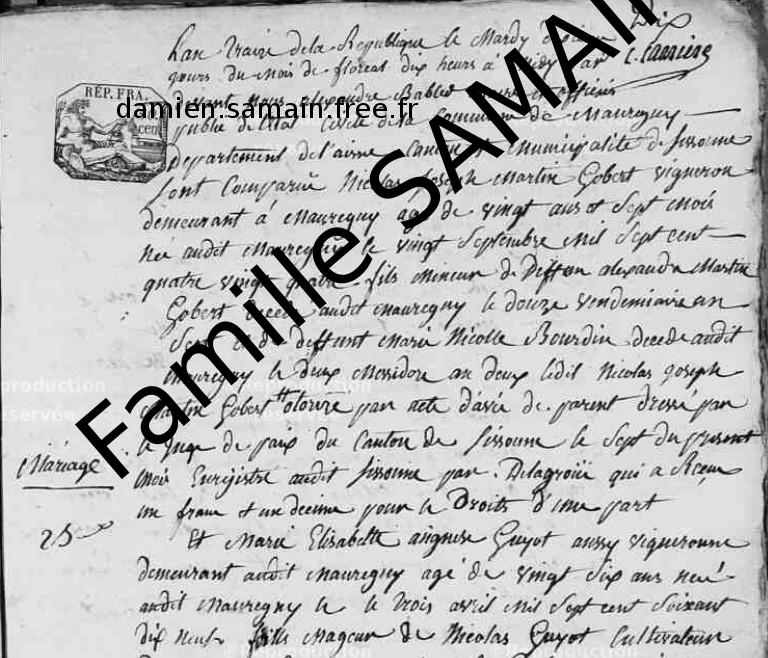 Dix
L'an Traize de la République le Mardy dixieme
jours du mois de floreal dix heures à midy Par
devant Nous alexandre officier
public de l'Etat Civile de la Commune de Mauregny
departement de l'aisne Canton municipalité de Sissonne
sont Comparüe Nicolas Joseph Martin Gobert vigneron
demeurant à Mauregny agé de vingt ans et Sept mois
Né audit Mauregny le vingt Septembre Mil Sept cent
quatre vingt quatre fils mineur de Deffun alexandre Martin
Gobert decede audit Mauregny le douze vendemiaire an
Sept et de deffunt Marie Nicolle Bourdin decede audit
Mauregny le deux Messidore an deux ledit Nicolas Joseph
Martin Gobert otorize par acte d'avie de parent dressé par
le Juge de paix du Canton de Sissonne le Sept du present
mois Enrejistre audit Sissonne par Delagroüe qui a Reçu
un franc et un decime pour le Droits D'une part
Et Marie Elisabette aignese Guyot aussy vigneronne
demeurant audit Mauregny agé de vingt Six ans neé
audit Mauregny le le trois avril Mil Sept cent Soixant
Dix neuf fille Mageur de Nicolas Guyot Cultivateur
Mariage
25
RÉP. FRA.
damien.samain.free.fr
Famille SAMAIN